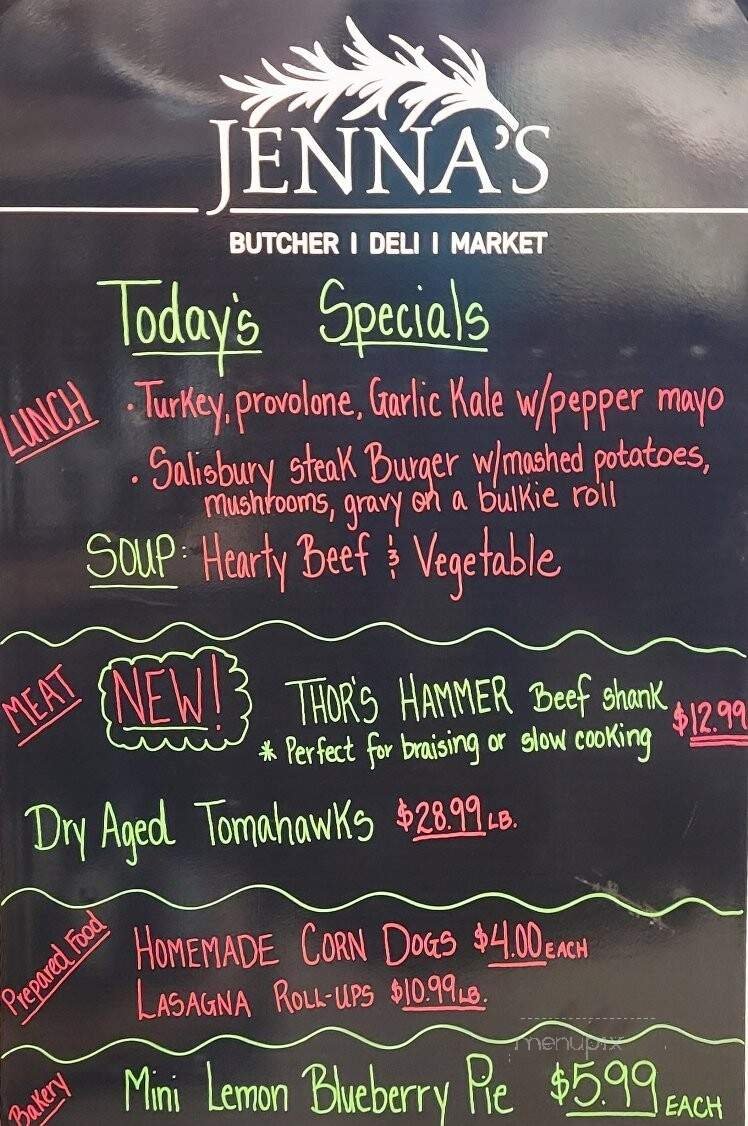 JENNA'S
BUTCHER | DELI | MARKET
Today's Specials
LUNCH · Turkey, provolone, Garlic Kale w/pepper mayo
· Salisbury steak Burger w/mashed potatoes,
mushrooms, gravy on a bulkie roll
SOUP: Hearty Beef & Vegetable
MEAT NEW! THOR'S HAMMER Beef shank $12.99
* Perfect for braising or slow cooking
Dry Aged Tomahawks $28.99 LB.
Prepared Food HOMEMADE CORN DOGS $4.00 EACH
LASAGNA ROLL-UPS $10.99 LB.
menupix
Bakery Mini Lemon Blueberry Pie $5.99 EACH